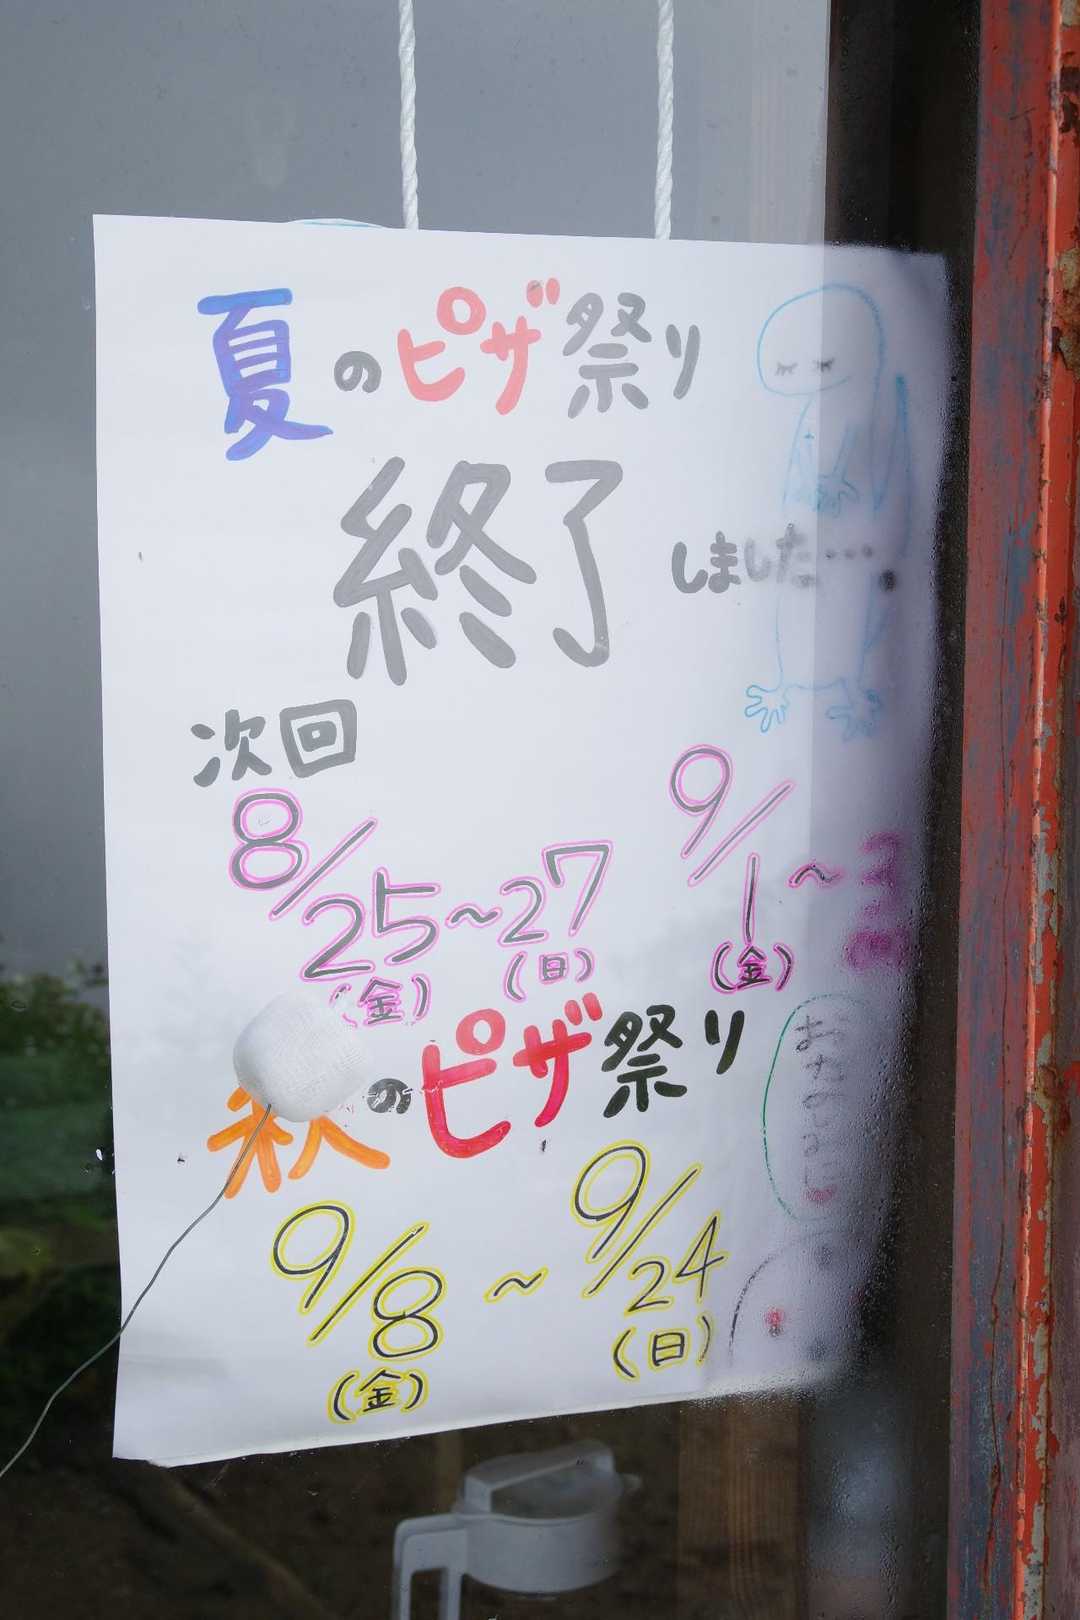 夏のピザ祭り
終了しました…。
次回
8/25(金)~27(日)
9/1(金)~3
秋のピザ祭り
9/8(金)~9/24(日)
おたのしみに